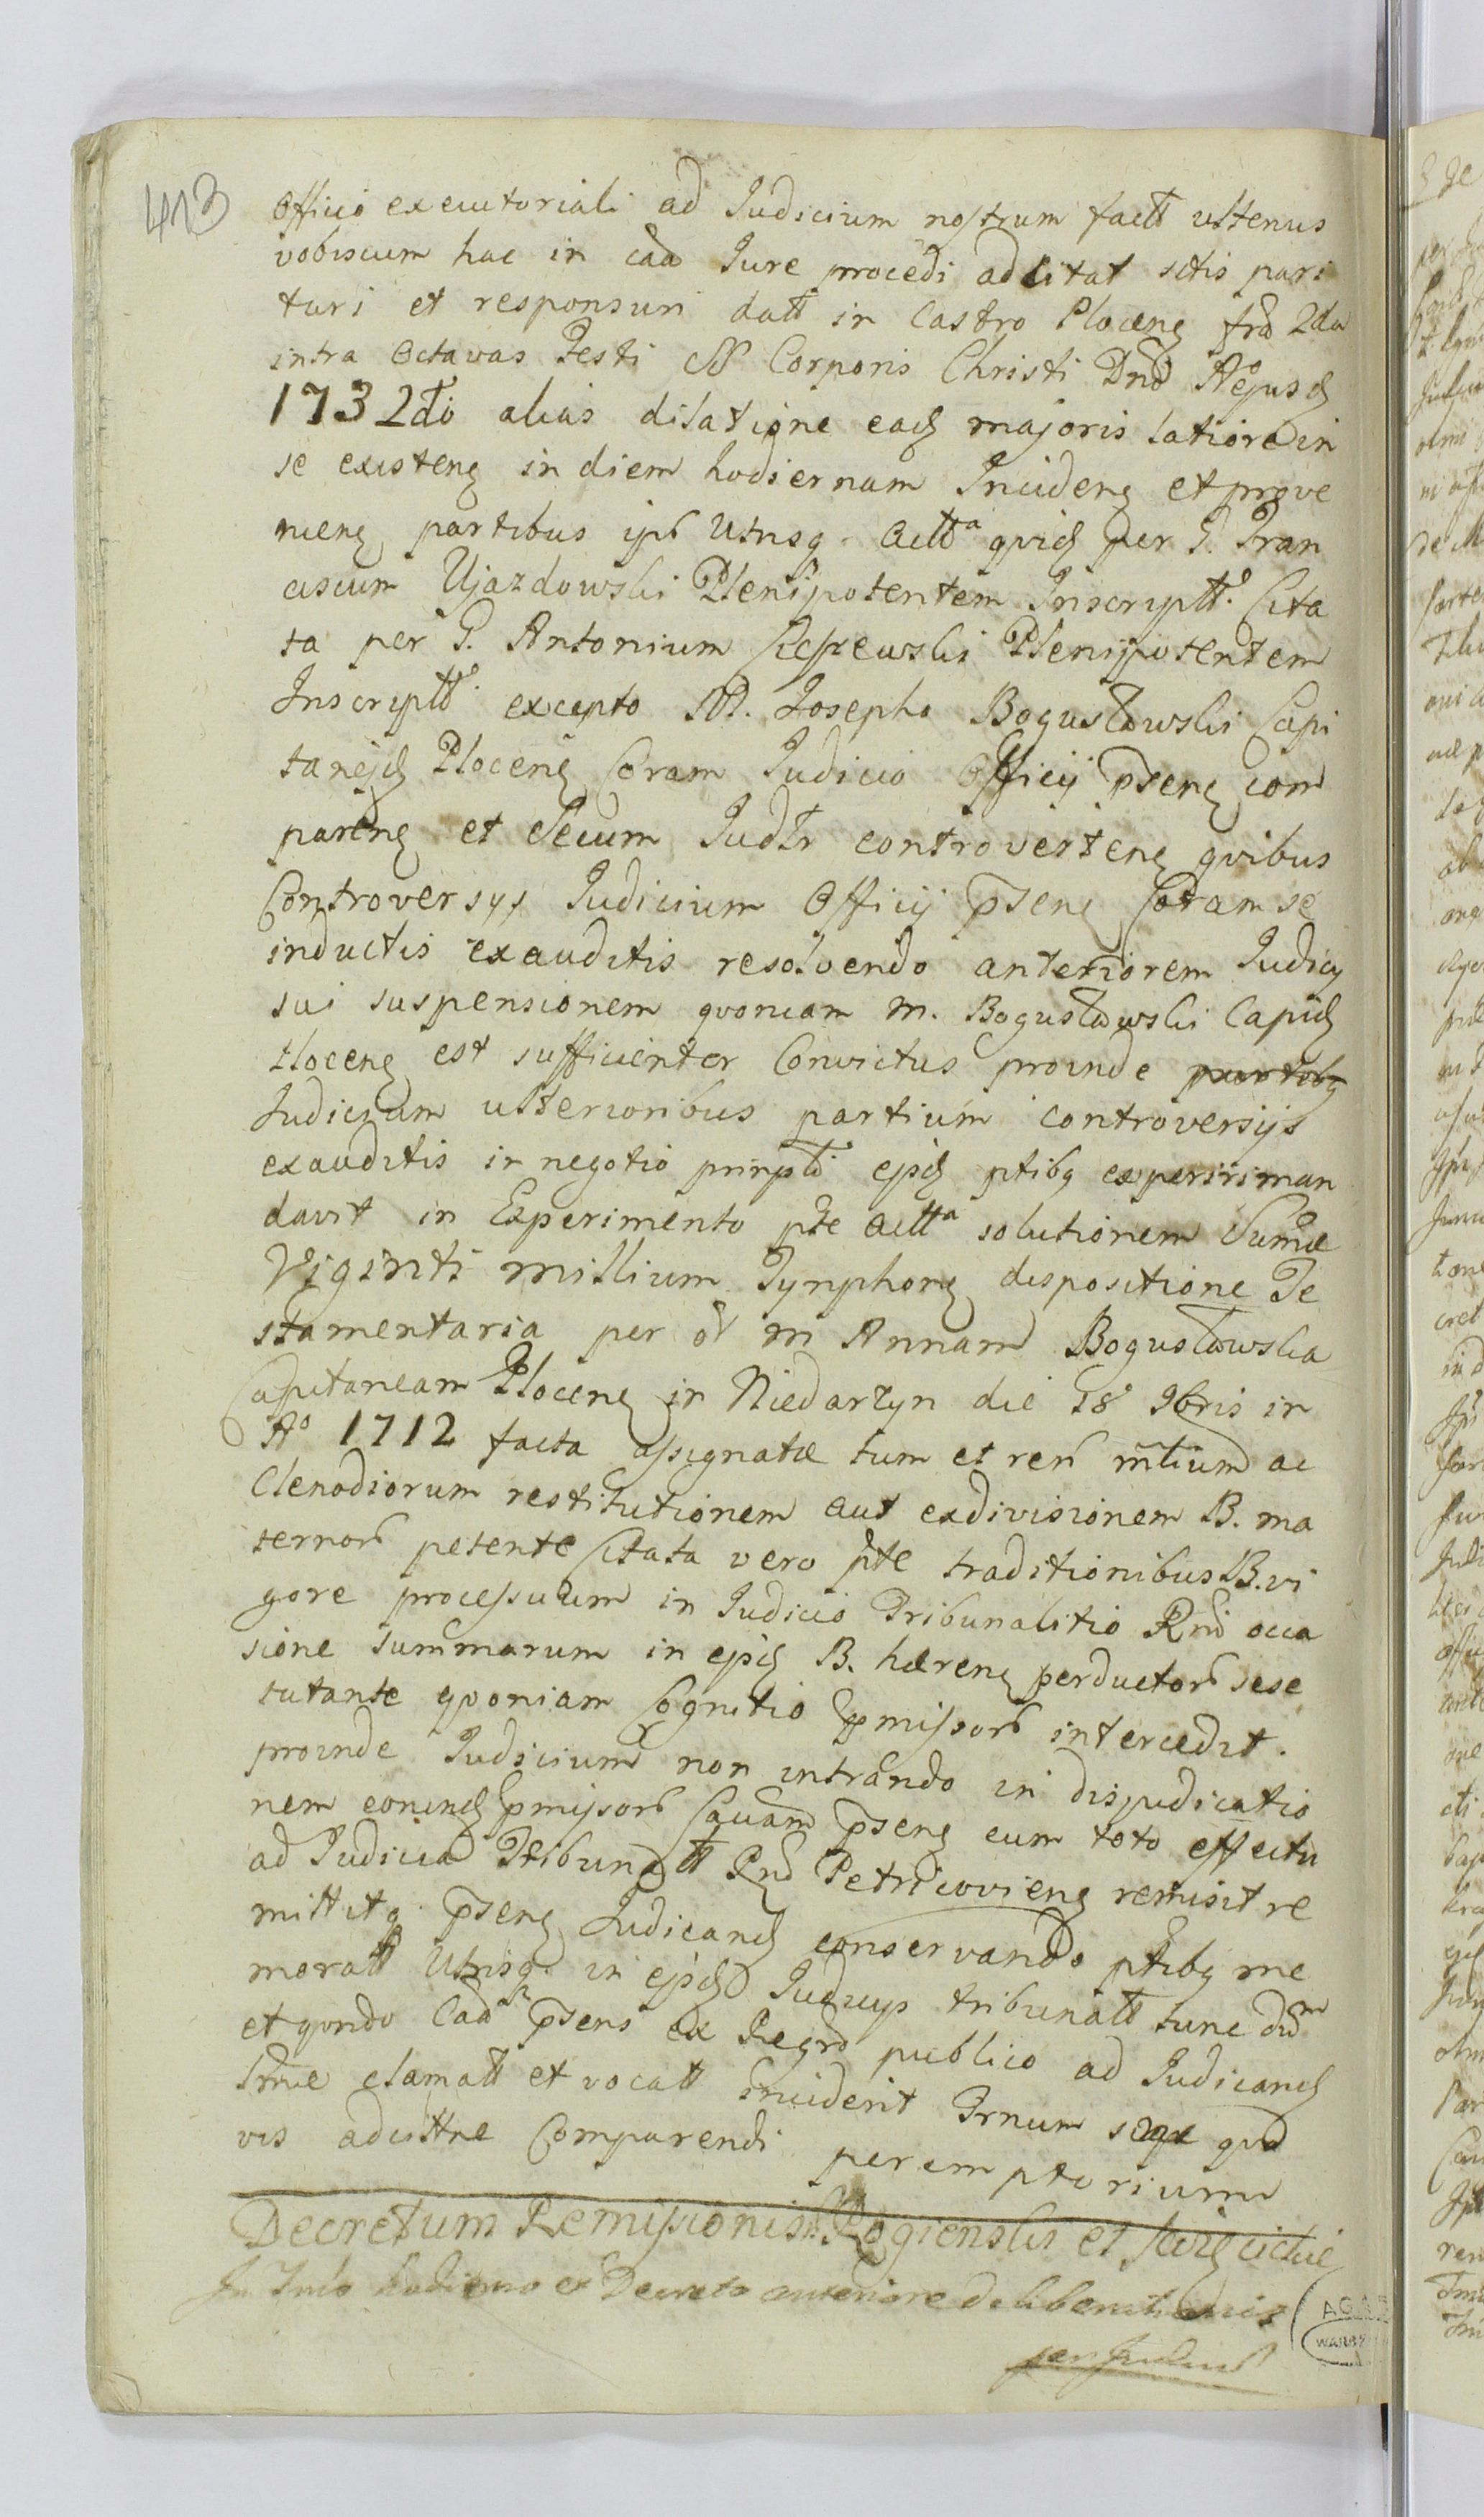 413
Officio executoriali ad Judicium nostrum factt ultenus
vobiscum hac in caã Jure procedi ad citat sitis pari
turi et responsuri datt in Castro Ploceng frã 2da
intra Octavas Festi SS Corporis Christi Dnõ Aº ejusd
1732dõ alias dilatione ead majoris latiore in
se existeng in diem hodiernam Incideng et prove
nieng partibus ipt Utrisq. Actt^a qvid per G. Fran
ciscum Ujazdowski Plenipotentem Inscriptt^e. Cita
ta per G. Antonium Plenipotentem
Inscriptt^e. excepto M. Josepho Bogusławski Capi
taneĵd Ploceng Coram Judicio Officij p̃seng com
pareng et Secum Judtr controverteng qvibus
Controversys Judicium Officij p̃seng Coram se
inductis exauditis resolvendo anteriorem Judicy
sui suspensionem qvoniam M. Bogusławski Capid
Ploceng est sufficienter Convictus proinde partibg
Judicium ulterioribus partium controversijs
exauditis in negotio prinptt ejsd ptibg experiri man
davit in Experimento pte Actt^a solutionem Sumæ
Viginti millium Tynphong dispositione Te
stamentaria per ol M Annam Bogusławska
Capitaneam Ploceng in Niedarzyn die 18 9bris in
Aº 1712 facta assignatæ tum et rerũ m̃lium ac
Clenodiorum restitutionem aut exdivisionem B. ma
ternorũ petente Citata vero pte traditionibus B. vi
gore processuum in Judicio Tribunalitio Rnĩ occa
sione summarum in ejsd B. hæreng perductorũ sese
tutante qvoniam Cognitio p̃missorũ intercedit.
proinde Judicium non intrando in disjudicatio
nem eorund p̃missorũ Cauam p̃seng cum toto effectu
ad Judicia Tribunatt Rnĩ Petricovieng remisit re
mittitq. p̃seng Judicand conservando ptibg me
moratt Utrisq. in ejsd Judicijs tribunatt tunc dũm
et qvndo Caã p̃sens ex Regrõ publico ad Judicand
Irme clamatt et vocatt inciderit Trnum seqe qvd
vis adcittne Comparendi peremptorium
Decretum Remissionis Rogienski et
In Tnõ hodierno ex Decreto anteriore deliberationis
AGAD
WARSZ